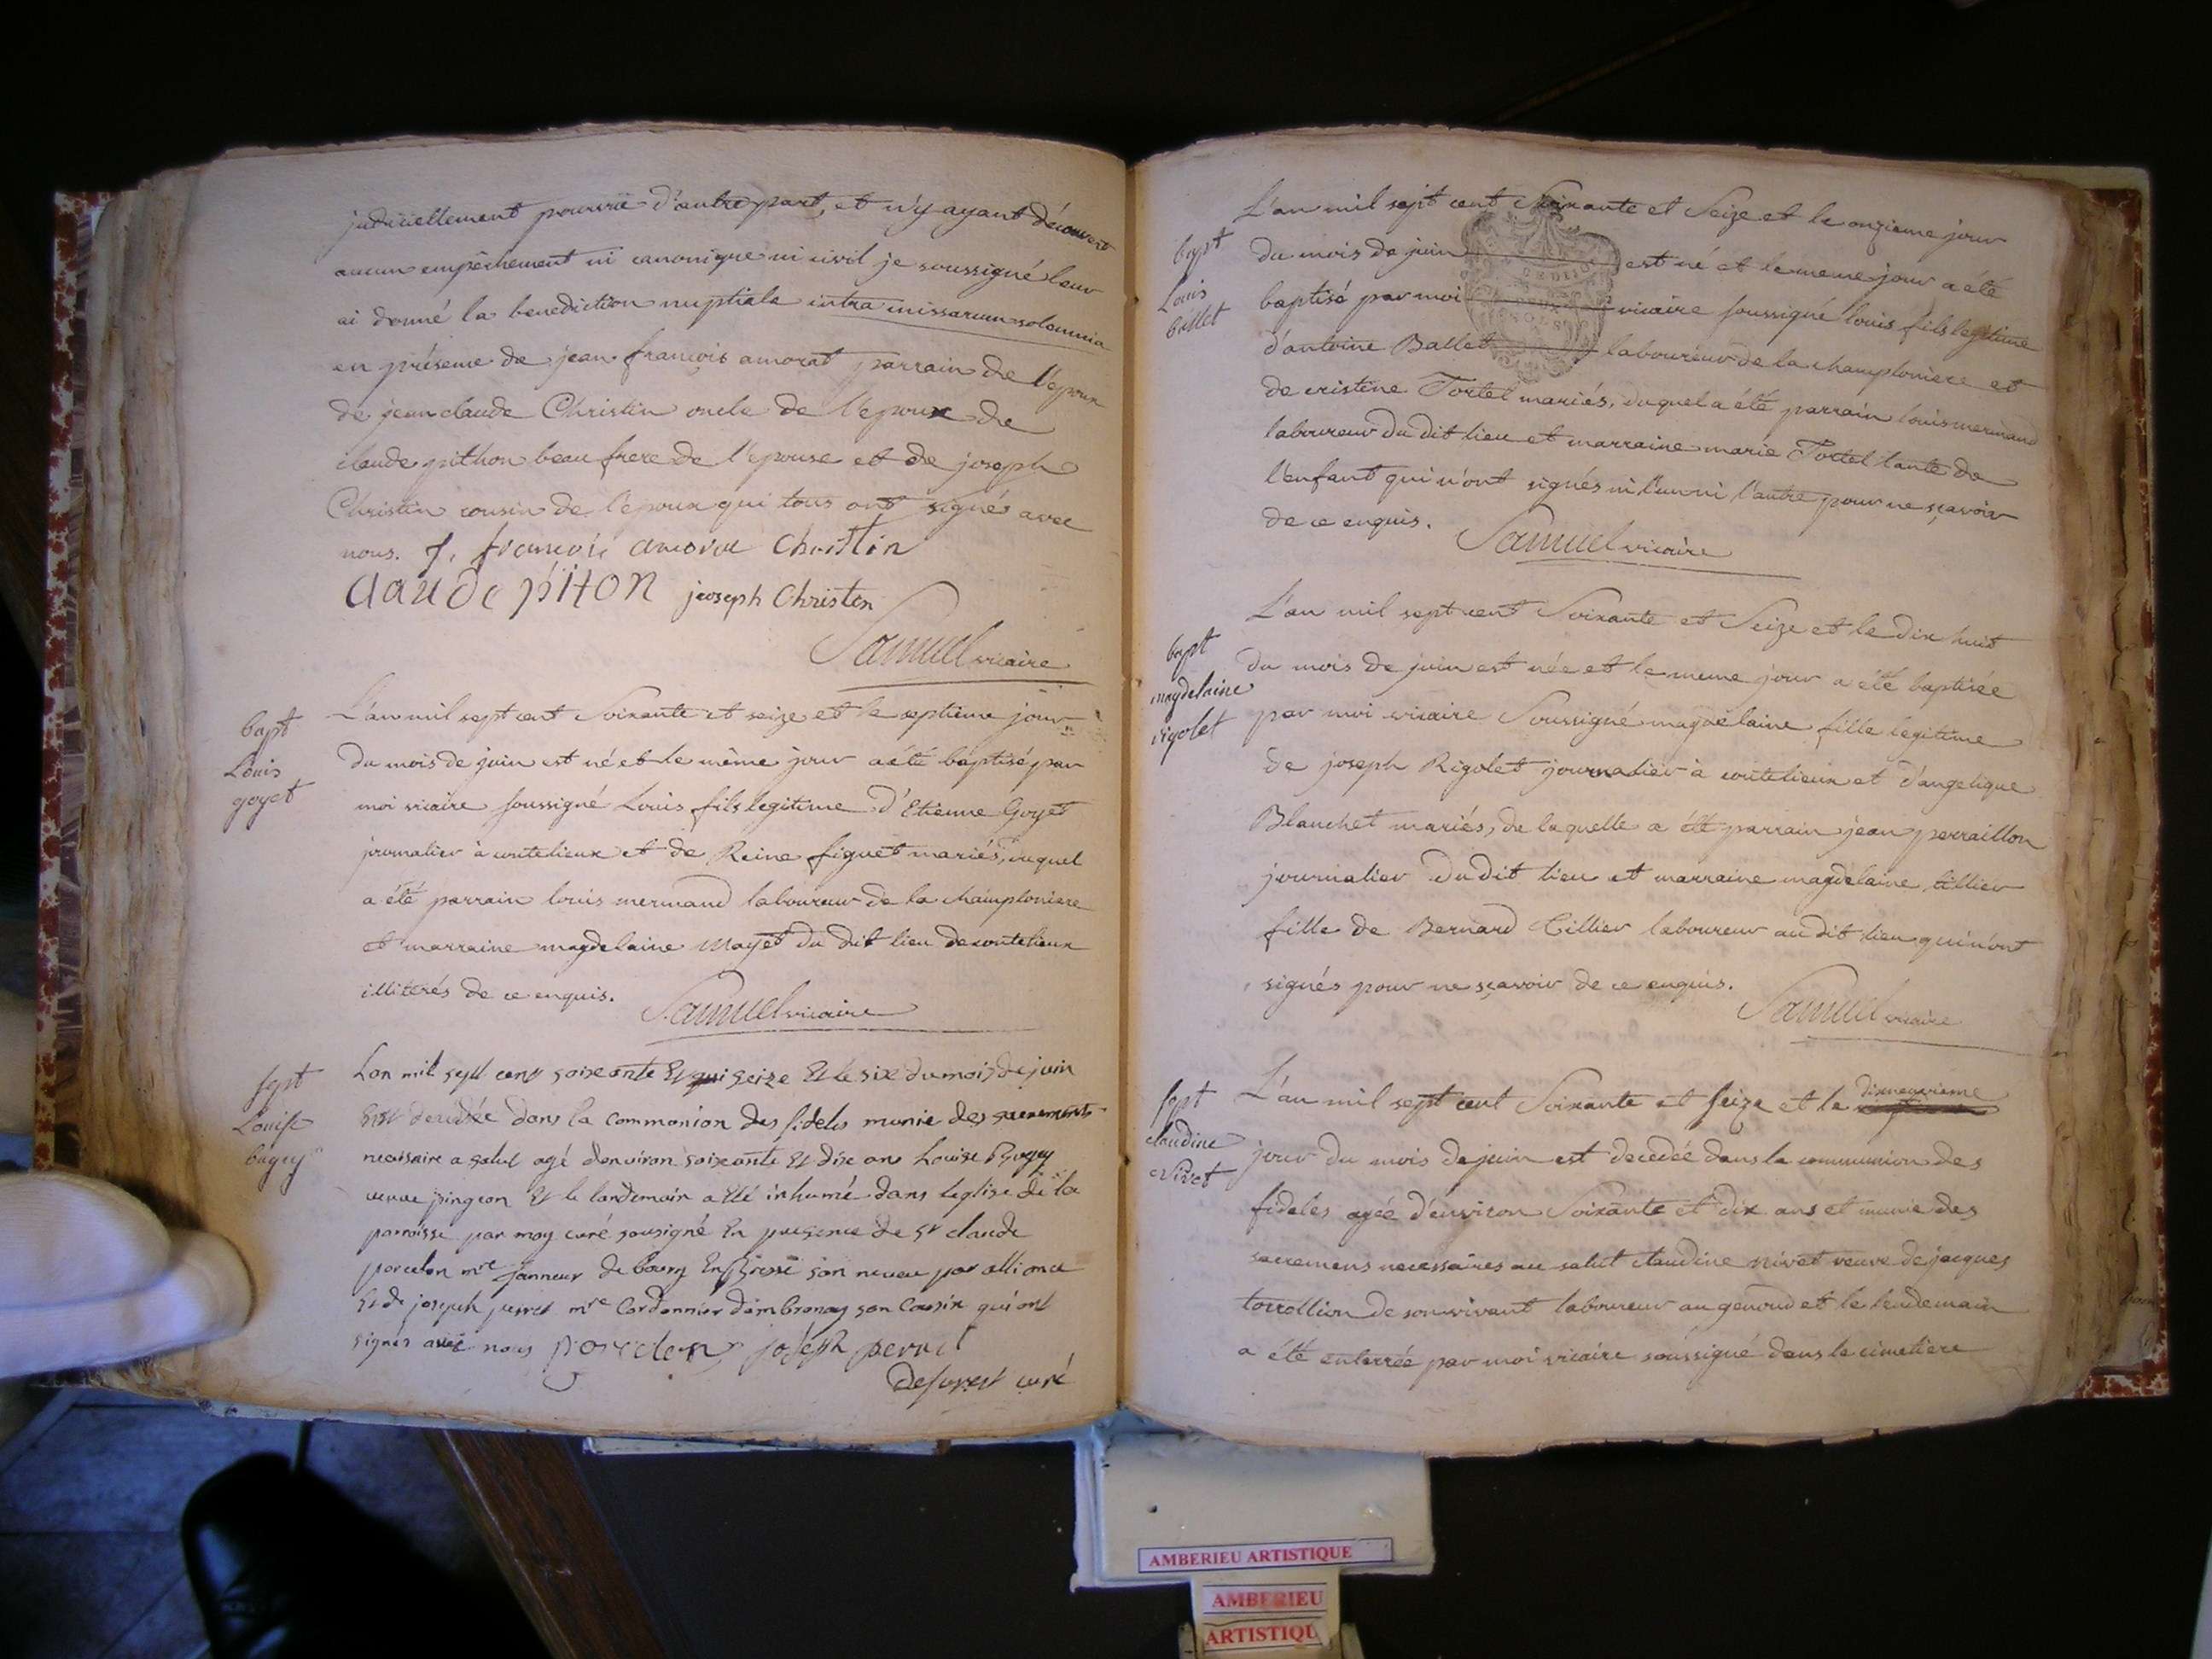 judiciellement pourvüe d'autre part, et n'y ayant découvert
aucun empêchement ni canonique ni civil je soussigné leur
ai donné la benediction nuptiale intra missarum solemnia
en présence de jean françois amorat parrain de l'epoux
de jean claude Christin oncle de l'epoux de
claude pithon beau frere de l'epouse et de joseph
Christin cousin de l'epoux qui tous ont signés avec
nous. j. francois amorat Christin
claude piton joseph Christin
Samuel vicaire
bapt
Louis
goyet
L'an mil sept cent Soixante et seize et le septieme jour
du mois de juin est né et le même jour a été baptisé par
moi vicaire soussigné Louis fils legitime d'Etienne Goyet
journalier à coutelieux et de Reine figuet mariés, duquel
a été parrain louis mermand laboureur de la champloniere
et marraine magdelaine mayet du dit lieu de coutelieux
illiterés de ce enquis. Samuel vicaire
sept
Louise
bugey
Lan mil sept cent soixante Et qui seize Et le six du mois de juin
Est decedée dans la communion des fideles munie des sacrements
necessaire a salut agé denviron soixante Et dix ans Louise Bugey
veuve pingeon Et le landemain a Eté inhumé dans leglise de la
paroisse par moy curé sousigné En presence de sr claude
porcelon mre tanneur de bourg En Bresse son neveu par alliance
Et de joseph perret mre Cordonnier dambronay son Cousin qui ont
signés avec nous porcelon joseph perret
curé
bapt
Louis
ballet
L'an mil sept cent Soixante et Seize et le onzieme jour
du mois de juin est né et le meme jour a été
baptisé par moi vicaire soussigné louis fils legitime
d'antoine Ballet laboureur de la champloniere et
de cristine Tortel mariés, duquel a été parrain louis mermand
laboureur du dit lieu et marraine marie Tortel tante de
l'enfant qui n'ont signés ni l'un ni l'autre pour ne sçavoir
de ce enquis. Samuel vicaire
bapt
magdelaine
rigolet
L'an mil sept cent Soixante et Seize et le dix huit
du mois de juin est née et le meme jour a été baptisée
par moi vicaire Soussigné magdelaine fille legitime
de joseph Rigolet journalier à coutelieux et d'angelique
Blanchet mariés, de laquelle a été parrain jean perraillon
journalier du dit lieu et marraine magdelaine tillier
fille de Bernard Tillier laboureur au dit lieu qui n'ont
signés pour ne sçavoir de ce enquis.
Samuel vicaire
sept
claudine
Nivet
L'an mil sept cent Soixante et seize et le dixneuvieme
jour du mois de juin est decedée dans la communion des
fideles agée d'environ Soixante et dix ans et munie des
sacremens necessaires au salut claudine nivet veuve de jacques
torrollion de son vivant laboureur au genoud et le lendemain
a été enterrée par moi vicaire soussigné dans le cimetiere
AMBERIEU ARTISTIQUE
AMBERIEU
ARTISTIQU